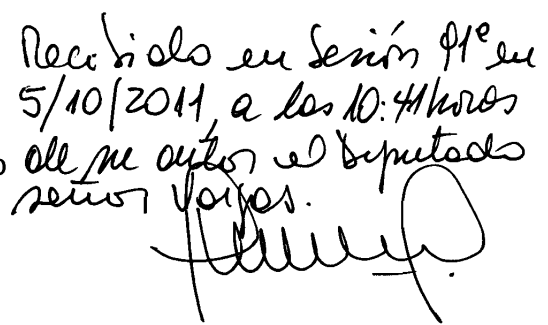 Recibido en Sesión 91ª en
5/10/2011, a las 10:41 horas
de su autor el Diputado
señor Vargas.